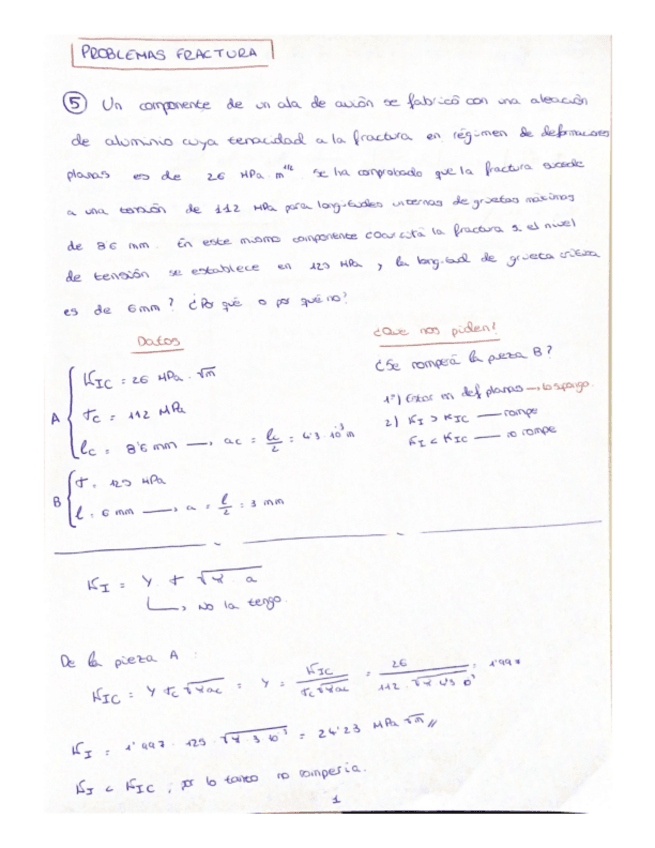 PROBLEMAS FRACTURA
⑤ Un componente de un ala de avión se fabricó con una aleación
de aluminio cuya tenacidad a la fractura en régimen de deformaciones
planas es de 26 MPa · m^1/2 se ha comprobado que la fractura sucede
a una tensión de 112 MPa para longitudes internas de grietas máximas
de 8'6 mm. En este mismo componente ocurrirá la fractura si el nivel
de tensión se establece en 125 MPa, y la longitud de grieta crítica
es de 6 mm? ¿Por qué o por qué no?
Datos
¿Que nos piden?
A
K_IC = 26 MPa · √m
σc = 112 MPa
lc = 8'6 mm → ac = lc/2 = 4'3 · 10^-3 m
B
σ = 125 MPa
l = 6 mm → a = l/2 = 3 mm
¿Se romperá la pieza B?
1º) Estar en def planas → lo supongo.
2) K_I > K_IC — rompe
K_I < K_IC — no rompe
K_I = Y σ √π · a
↳ No la tengo.
De la pieza A :
K_IC = Y σc √π ac = Y = K_IC / σc √π ac = 26 / 112 · √π 4'3 10^-3 = 1'997
K_I = 1'997 · 125 · √π · 3 10^-3 = 24'23 MPa √m //
K_I < K_IC ; por lo tanto no rompería.
1